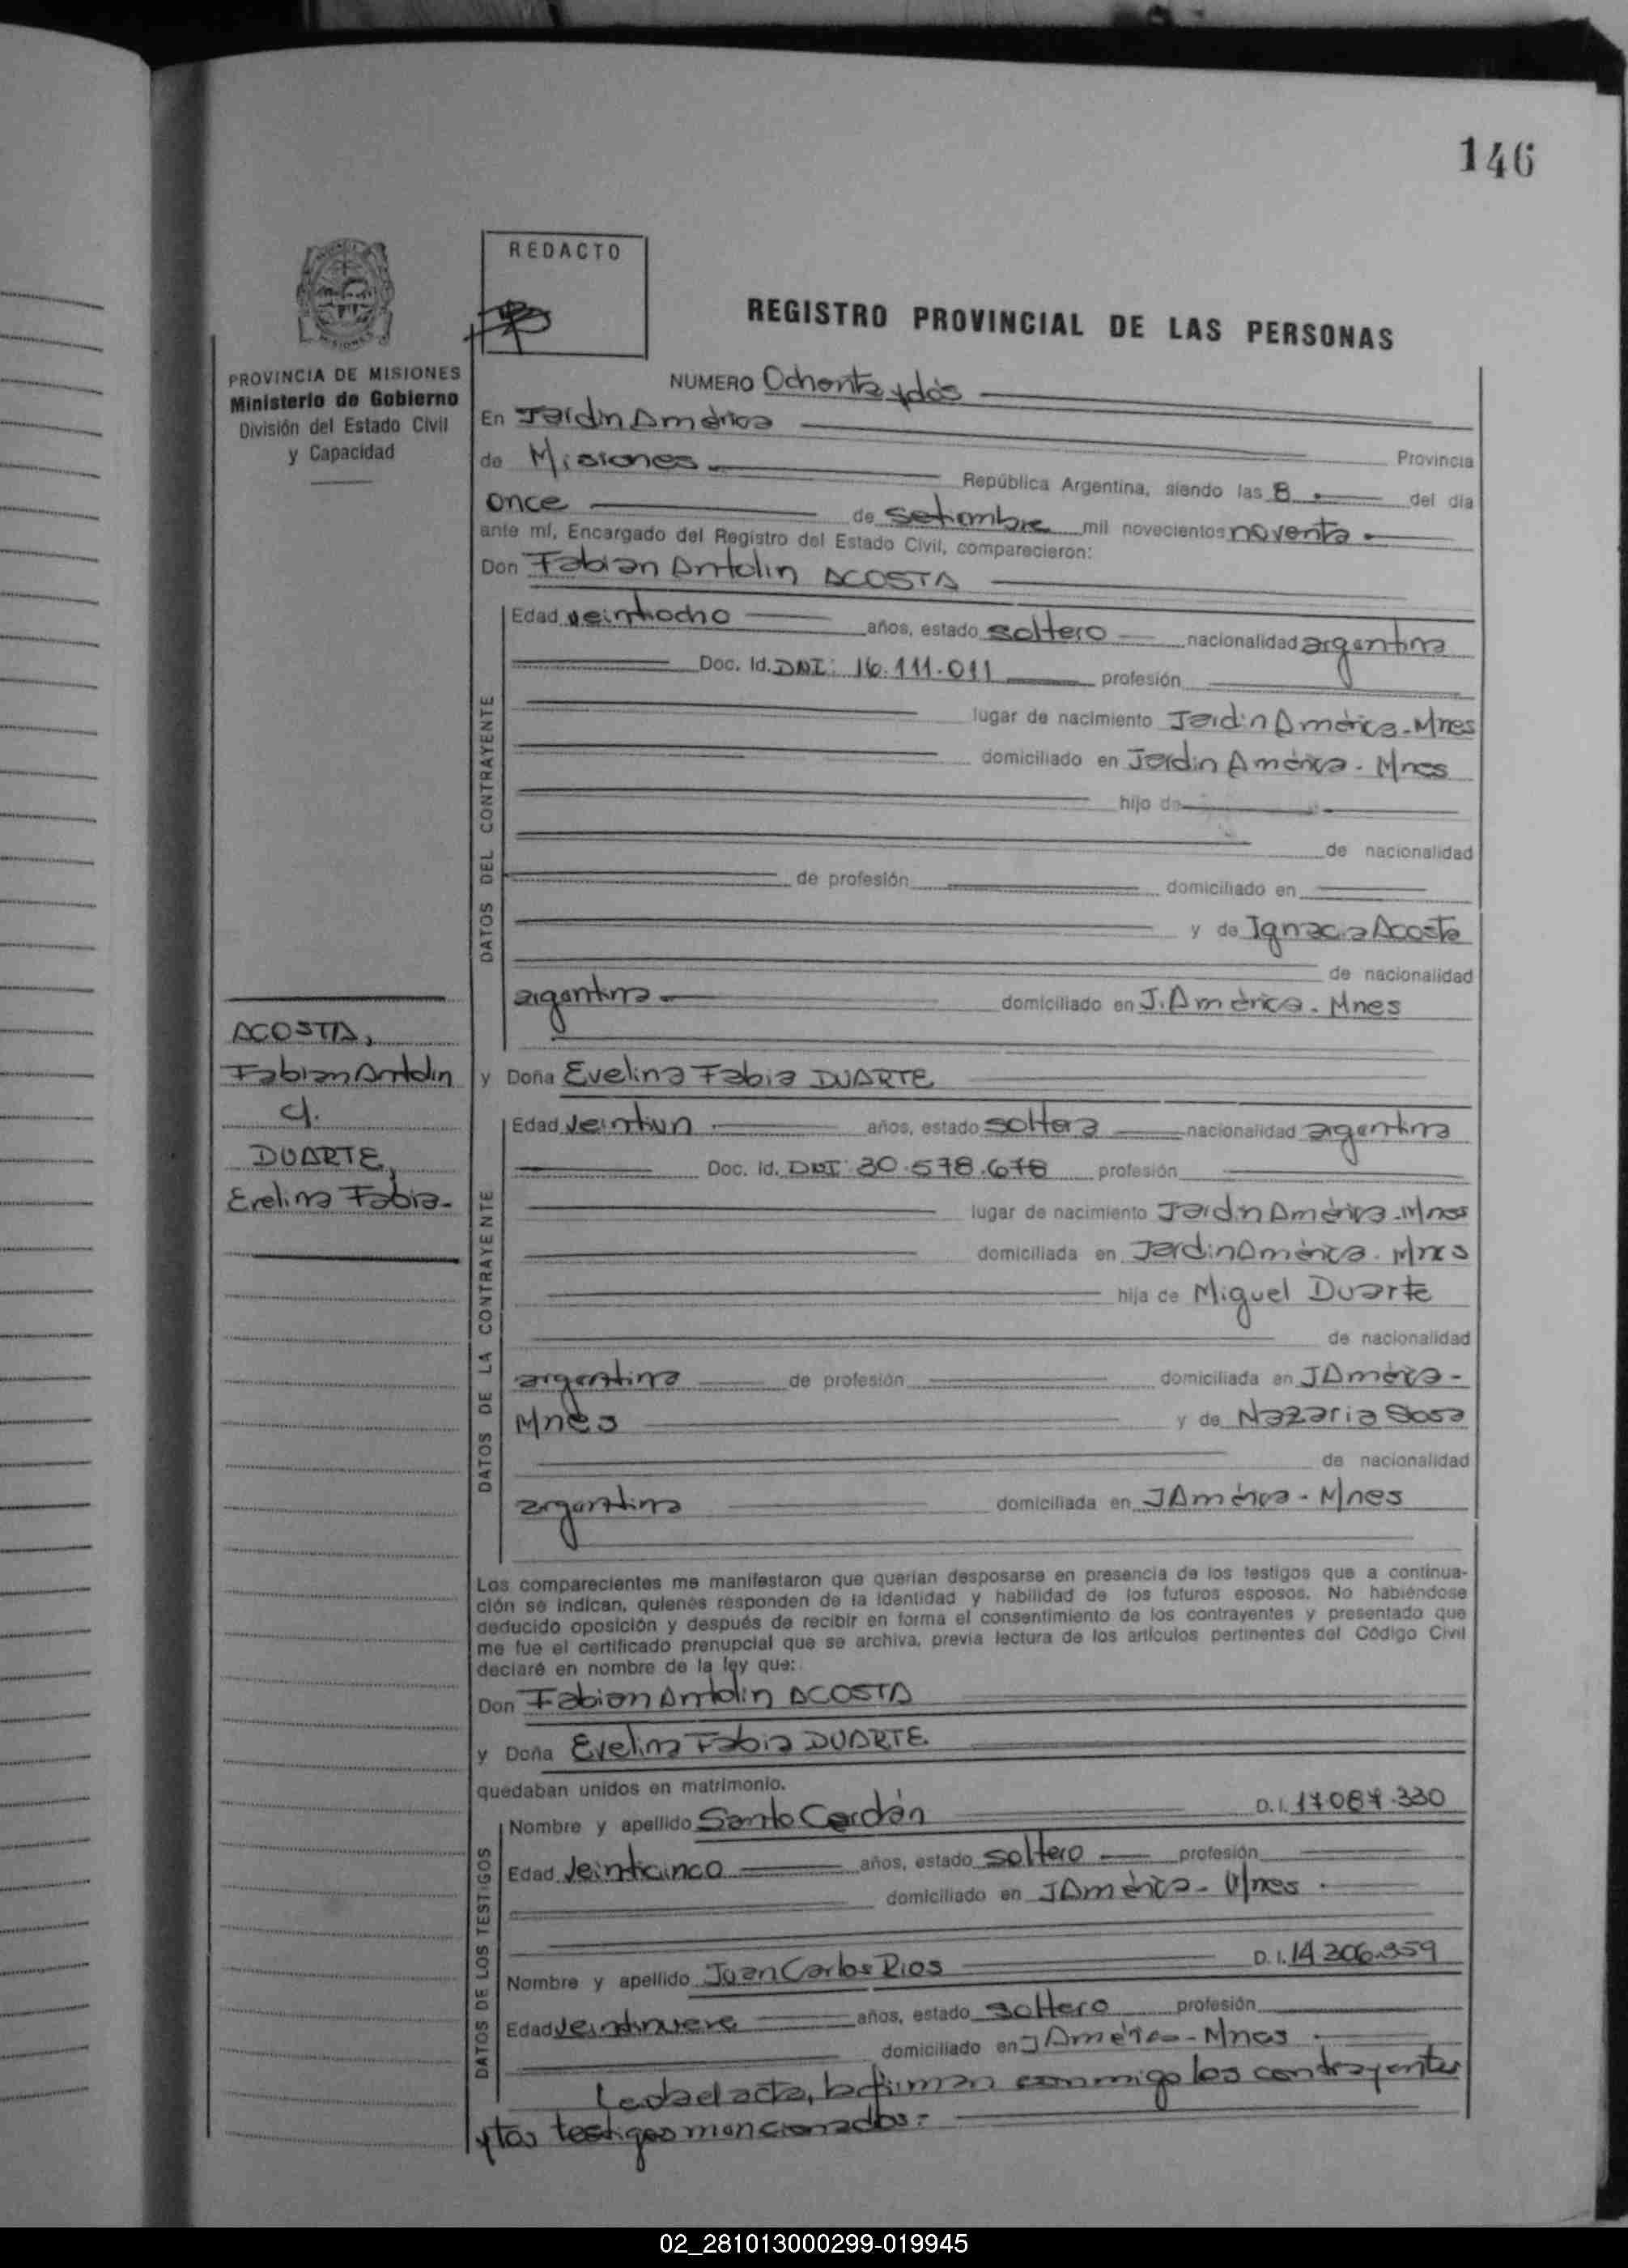 146
REDACTO
REGISTRO PROVINCIAL DE LAS PERSONAS
MISIONES
PROVINCIA DE MISIONES
Ministerio de Gobierno
División del Estado Civil
y Capacidad
NUMERO Ochenta y dós
En Jardin América
de Misiones Provincia
República Argentina, siendo las 8 del día
once de setiembre mil novecientos noventa
ante mí, Encargado del Registro del Estado Civil, comparecieron:
Don Fabian Antolin ACOSTA
DATOS DEL CONTRAYENTE
Edad veintiocho años, estado soltero nacionalidad argentina
Doc. Id. DNI: 16.111.011 profesión
lugar de nacimiento Jardin América - Mnes
domiciliado en Jardin América - Mnes
hijo de
de nacionalidad
de profesión domiciliado en
y de Ignacia Acosta
de nacionalidad
argentina domiciliado en J. América - Mnes
ACOSTA,
Fabian Antolin
c/.
DUARTE,
Evelina Fabia -
y Doña Evelina Fabia DUARTE
DATOS DE LA CONTRAYENTE
Edad veintiun años, estado soltera nacionalidad argentina
Doc. Id. DNI: 30.578.678 profesión
lugar de nacimiento Jardin América - Mnes
domiciliada en Jardin América - Mnes
hija de Miguel Duarte
de nacionalidad
argentina de profesión domiciliada en J América -
Mnes y de Nazaria Sosa
de nacionalidad
argentina domiciliada en J América - Mnes
Los comparecientes me manifestaron que querían desposarse en presencia de los testigos que a continua-
ción se indican, quienes responden de la identidad y habilidad de los futuros esposos. No habiéndose
deducido oposición y después de recibir en forma el consentimiento de los contrayentes y presentado que
me fue el certificado prenupcial que se archiva, previa lectura de los artículos pertinentes del Código Civil
declaré en nombre de la ley que:
Don Fabian Antolin ACOSTA
y Doña Evelina Fabia DUARTE
quedaban unidos en matrimonio.
DATOS DE LOS TESTIGOS
Nombre y apellido Santo Cardán D.I. 17087.330
Edad veinticinco años, estado soltero profesión
domiciliado en J América - Mnes
Nombre y apellido Juan Carlos Rios D.I. 14.306.359
Edad veintinueve años, estado soltero profesión
domiciliado en J América - Mnes
Leida el acta, la firman conmigo los contrayentes
y los testigos mencionados: -
02_281013000299-019945